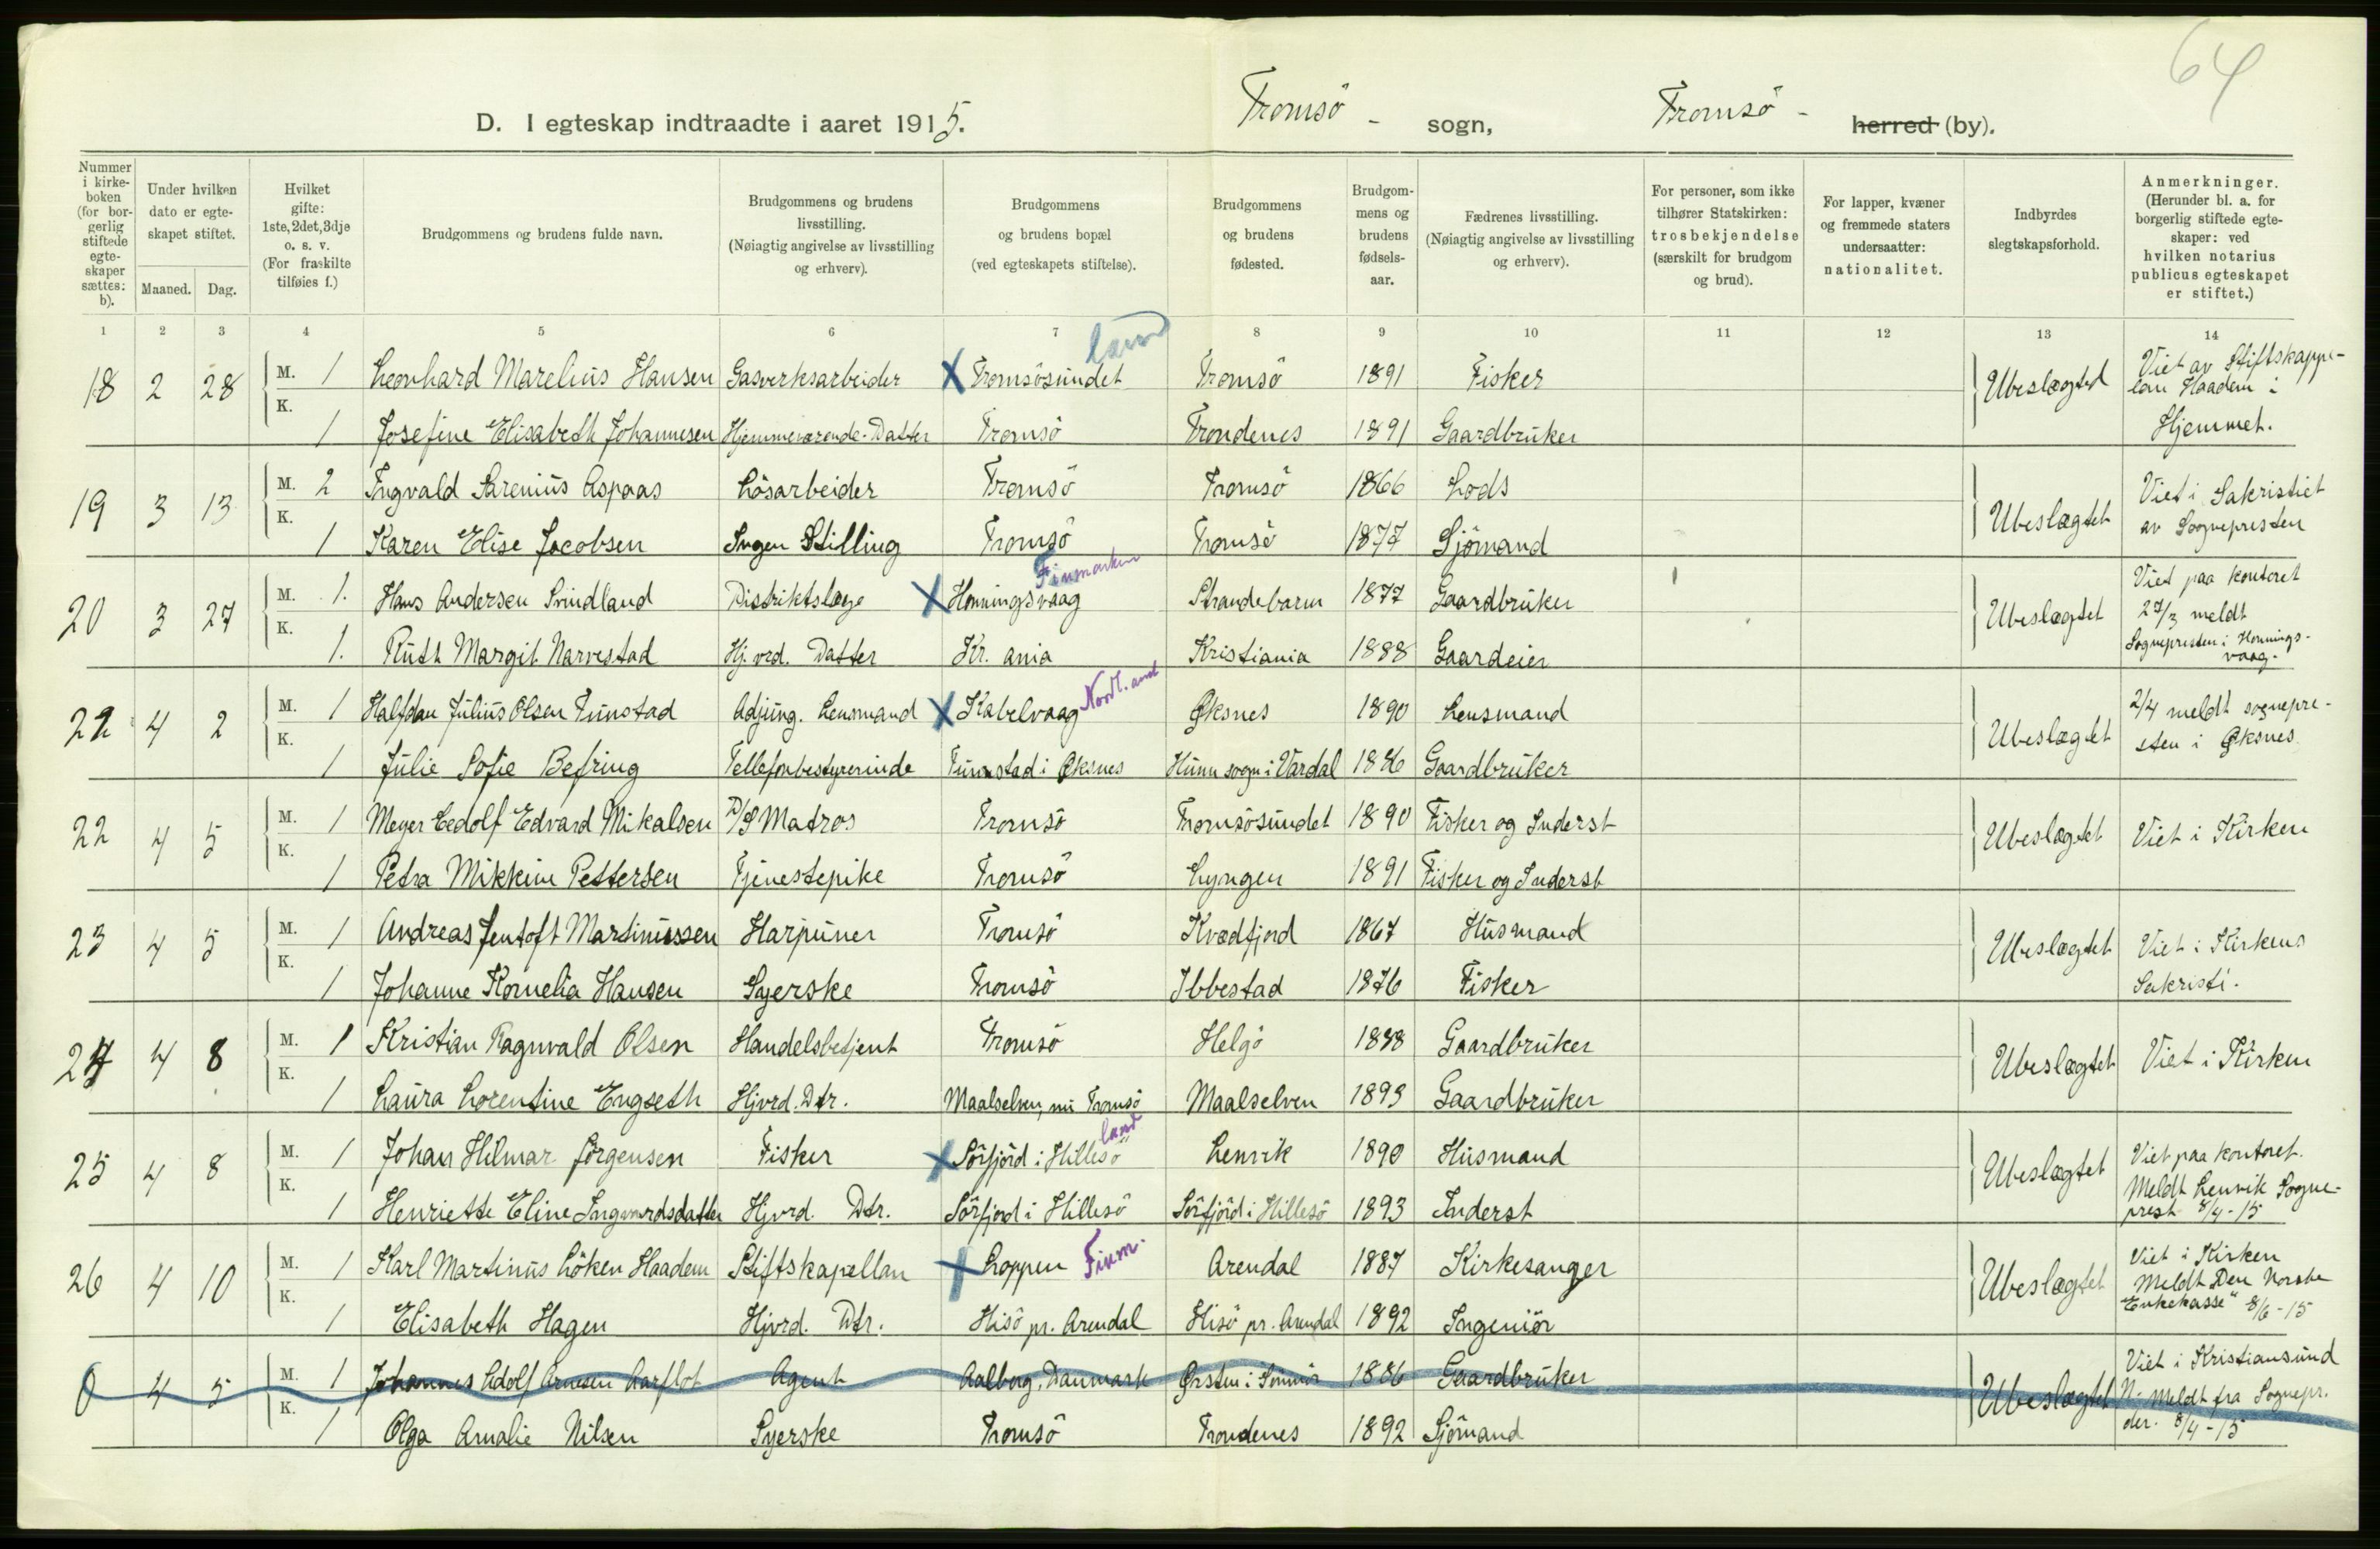 64
D. I egteskap indtraadte i aaret 1915. Tromsö - sogn, Tromsö - herred (by).
Nummer i kirke-boken (for bor-gerlig stiftede egte-skaper sættes: b).
Under hvilken dato er egte-skapet stiftet.
Maaned. Dag.
Hvilket gifte: 1ste, 2det, 3dje o. s. v. (For fraskilte tilføies f.)
Brudgommens og brudens fulde navn.
Brudgommens og brudens livsstilling. (Nøiagtig angivelse av livsstilling og erhverv).
Brudgommens og brudens bopæl (ved egteskapets stiftelse).
Brudgommens og brudens fødested.
Brudgom-mens og brudens fødsels-aar.
Fædrenes livsstilling. (Nøiagtig angivelse av livsstilling og erhverv).
For personer, som ikke tilhører Statskirken: trosbekjendelse (særskilt for brudgom og brud).
For lapper, kvæner og fremmede staters undersaatter: nationalitet.
Indbyrdes slegtskapsforhold.
Anmerkninger. (Herunder bl. a. for borgerlig stiftede egte-skaper: ved hvilken notarius publicus egteskapet er stiftet.)
1 2 3 4 5 6 7 8 9 10 11 12 13 14
18 2 28 M. 1 Leonhard Marelius Hansen Gasverksarbeider X Tromsösundet land Tromsö 1891 Fisker Ubeslægted Viet av Stiftskappe-lan Haadem i Hjemmet.
K. 1 Josefine Elisabeth Johannesen Hjemmeværende-Datter Tromsö Trondenes 1891 Gaardbruker
19 3 13 M. 2 Ingvald Sarenius Aspaas Lösarbeider Tromsö Tromsö 1866 Lods Ubeslægtet Viet i Sakristiet av Sognepresten
K. 1 Karen Elise Jacobsen Ingen Stilling Tromsö Tromsö 1877 Sjömand
20 3 27 M. 1. Hans Andersen Svindland Distriktslæge X Honningsvaag Finmarken Strandebarm 1877 Gaardbruker Ubeslægtet Viet paa kontoret 27/3 meldt Sognepresten i Honnings-vaag.
K. 1. Ruth Margit Narvestad Hj. vrd. Datter Kr. ania Kristiania 1888 Gaardeier
21 4 2 M. 1 Halfdan Julius Olsen Tunstad Adjung. Lensmand X Kabelvaag Nordland Øksnes 1890 Lensmand Ubeslægtet 2/4 meldt sognepre-sten i Øksnes
K. 1 Julie Sofie Befring Tellefonbestyrerinde Tunstad i Øksnes Hunn sogn i Vardal 1886 Gaardbruker
22 4 5 M. 1 Meyer Eedolf Edvard Mikalsen D/S Matros Tromsö Tromsösundet 1890 Fisker og Inderst Ubeslægtet Viet i Kirken
K. 1 Petra Mikkine Pettersen Tjenestepike Tromsö Lyngen 1891 Fisker og Inderst
23 4 5 M. 1 Andreas Jentoft Martinussen Harpuner Tromsö Kvædfjord 1867 Husmand Ubeslægtet Viet i Kirkens Sakristi.
K. 1 Johanne Kornelia Hansen Syerske Tromsö Ibbestad 1876 Fisker
24 4 8 M. 1 Kristian Ragnvald Olsen Handelsbetjent Tromsö Helgö 1888 Gaardbruker Ubeslægtet Viet i Kirken
K. 1 Laura Lorentine Engseth Hjvrd. Dtr. Maalselven, nu Tromsö Maalselven 1893 Gaardbruker
25 4 8 M. 1 Johan Hilmar Jörgensen Fisker X Sörfjord i Hillesö land Lenvik 1890 Husmand Ubeslægtet Viet paa kontoret. Meldt Lenvik Sogne-prest 8/4-15
K. 1 Henriette Eline Ingvardsdatter Hjvrd. Dtr. Sörfjord i Hillesö Sörfjord i Hillesö 1893 Inderst
26 4 10 M. 1 Karl Martinus Löken Haadem Stiftskapellan X Loppen Finm. Arendal 1887 Kirkesanger Ubeslægtet Viet i Kirken Meldt Den Norske Enkekasse" 8/6-15
K. 1 Elisabeth Hagen Hjvrd. Dtr. Hisö pr. Arendal Hisö pr. Arendal 1892 Ingeniör
0 4 5 M. 1 Johannes Adolf Arnesen Aarflot Agent Aalborg, Danmark Ørsten i Sönmör 1886 Gaardbruker Ubeslægtet Viet i Kristiansund N. Meldt fra Sognepr. der. 8/4-15
K. 1 Olga Amalie Nilsen Syerske Tromsö Trondenes 1892 Sjömand